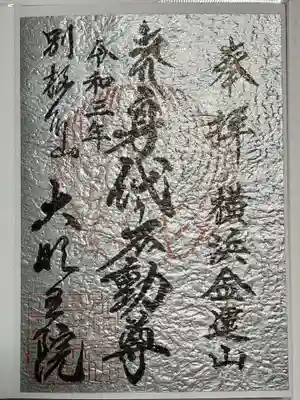 奉拝 横浜金蓮山
身代不動尊
令和三年
別格本山 大明王院